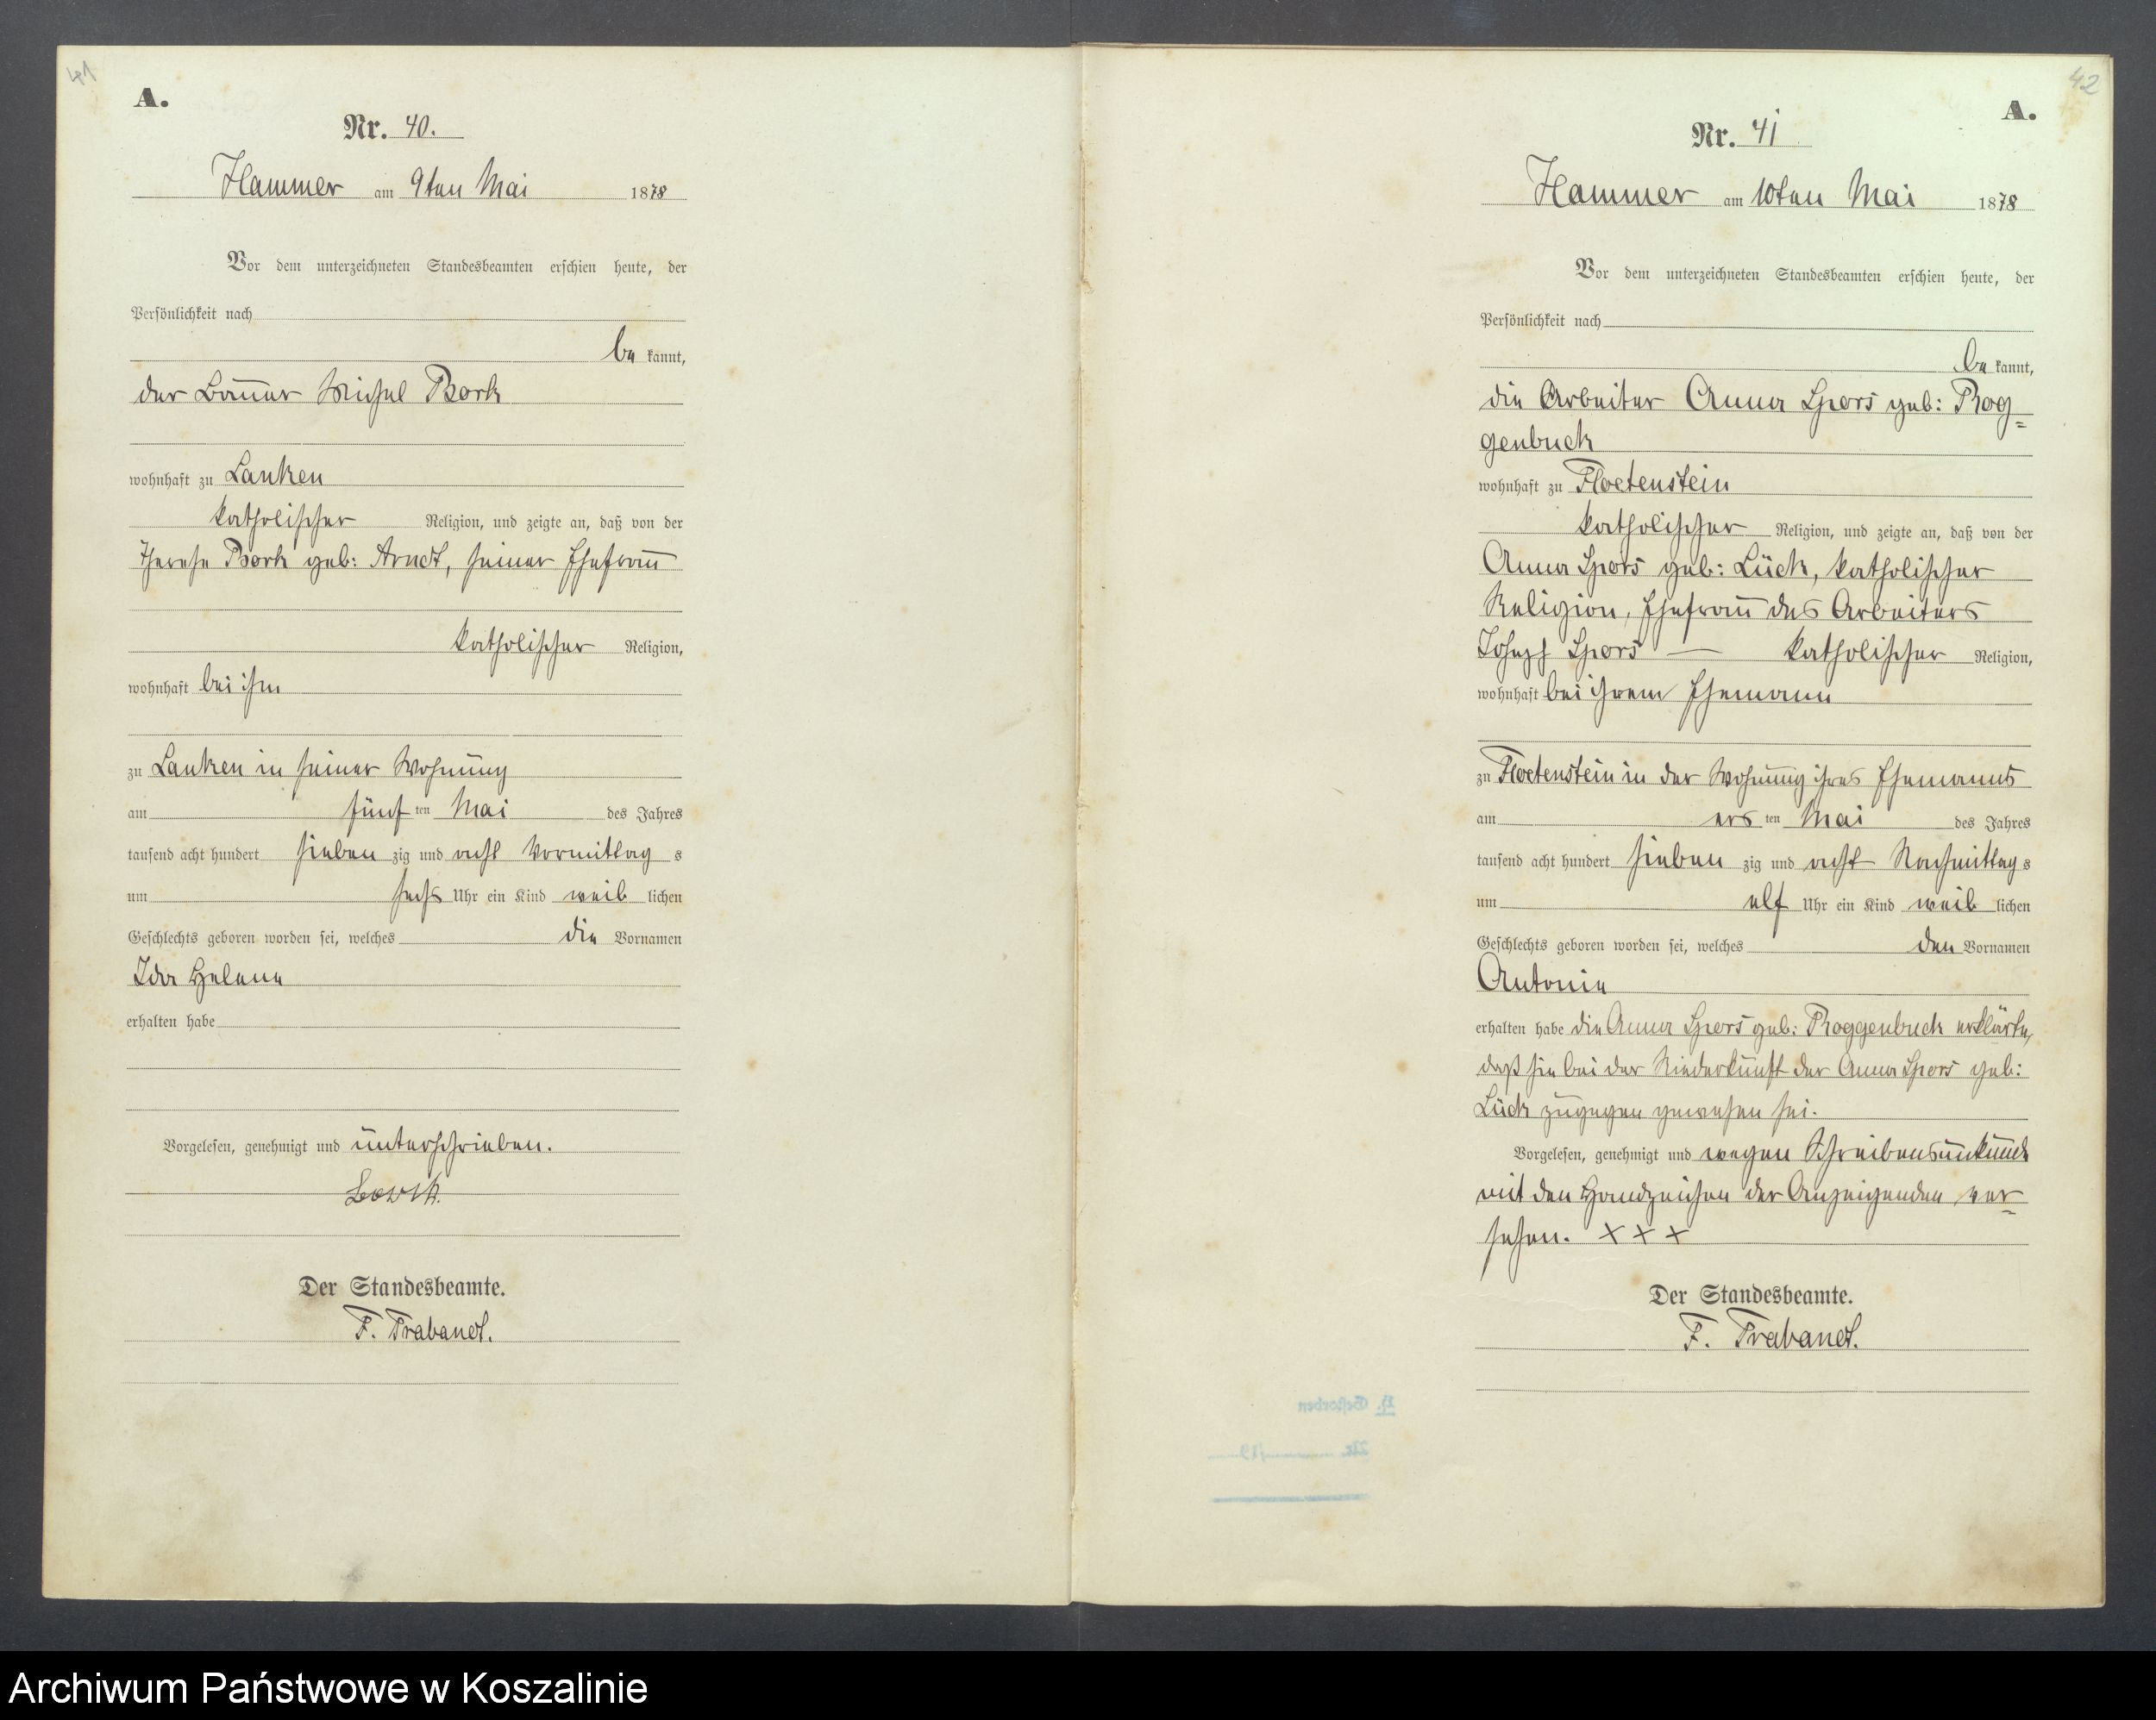 41
A.
Nr. 40.
Hammer am 9ten Mai 1878
Vor dem unterzeichneten Standesbeamten erschien heute, der
Persönlichkeit nach
be kannt,
der Bauer Michel Bork
wohnhaft zu Lanken
katholischer Religion, und zeigte an, daß von der
Therese Bork geb: Arndt, seiner Ehefrau
katholischer Religion,
wohnhaft bei ihm
zu Lanken in seiner Wohnung
am fünf ten Mai des Jahres
tausend acht hundert sieben zig und acht Vormittag s
um sechs Uhr ein Kind weib lichen
Geschlechts geboren worden sei, welches die Vornamen
Ida Helene
erhalten habe
Vorgelesen, genehmigt und unterschrieben.
Bork.
Der Standesbeamte.
F. Trabandt.
42
A.
Nr. 41
Hammer am 10ten Mai 1878
Vor dem unterzeichneten Standesbeamten erschien heute, der
Persönlichkeit nach
be kannt,
die Arbeiter Anna Spors geb: Rog=
genbuck
wohnhaft zu Floetenstein
katholischer Religion, und zeigte an, daß von der
Anna Spors geb: Lück, katholischer
Religion, Ehefrau des Arbeiters
Joseph Spors — katholischer Religion,
wohnhaft bei ihrem Ehemann
zu Floetenstein in der Wohnung ihres Ehemanns
am ers ten Mai des Jahres
tausend acht hundert sieben zig und acht Nachmittag s
um elf Uhr ein Kind weib lichen
Geschlechts geboren worden sei, welches den Vornamen
Antonie
erhalten habe die Anna Spors geb: Roggenbuck erklärte,
daß sie bei der Niederkunft der Anna Spors geb:
Lück zugegen gewesen sei.
Vorgelesen, genehmigt und wegen Schreibensunkunde
mit den Handzeichen der Anzeigenden ver=
sehen. + + +
Der Standesbeamte.
F. Trabandt.
Gestorben
Archiwum Państwowe w Koszalinie